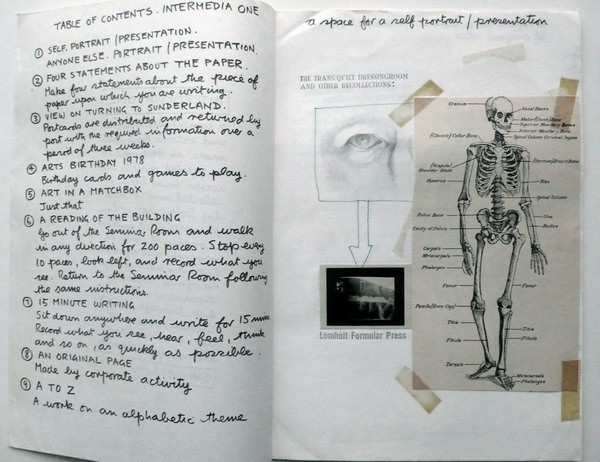 TABLE OF CONTENTS. INTERMEDIA ONE
① SELF. PORTRAIT / PRESENTATION.
ANYONE ELSE. PORTRAIT / PRESENTATION.
② FOUR STATEMENTS ABOUT THE PAPER.
Make four statements about the piece of
paper upon which you are writing.
③ VIEW ON TURNING TO SUNDERLAND.
Postcards are distributed and returned by
post with the required information over a
period of three weeks.
④ ARTS BIRTHDAY 1978
Birthday cards and games to play.
⑤ ART IN A MATCHBOX
Just that
⑥ A READING OF THE BUILDING
Go out of the Seminar Room and walk
in any direction for 200 paces. Stop every
10 paces, look left, and record what you
see. Return to the Seminar Room following
the same instructions.
⑦ 15 MINUTE WRITING
Sit down anywhere and write for 15 mins
Record what you see, hear, feel, think
and so on, as quickly as possible.
⑧ AN ORIGINAL PAGE
Made by corporate activity
⑨ A TO Z
A work on an alphabetic theme
a space for a self portrait / presentation
THE TRANSQUILT DRESSINGROOM
AND OTHER RECOLLECTIONS:
Lomholt Formular Press
Cranium
Nasal Bones
Malar (Cheek) Bone
Superior Maxillary Bones
Inferior Maxillary Bone
Spinal Column Cervical region
(Clavicle) Collar Bone
(Sternum) Breast Bone
(Scapula)
Shoulder Blade
Humerus
Ribs
Spinal Column
Pelvic Bone
Ulna
Radius
Cavity of Pelvis
Carpals
Metacarpals
Phalanges
Femur
Femur
Patella (Knee Cap)
Tibia
Tibia
Fibula
Fibula
Tarsals
Metatarsals
Phalanges